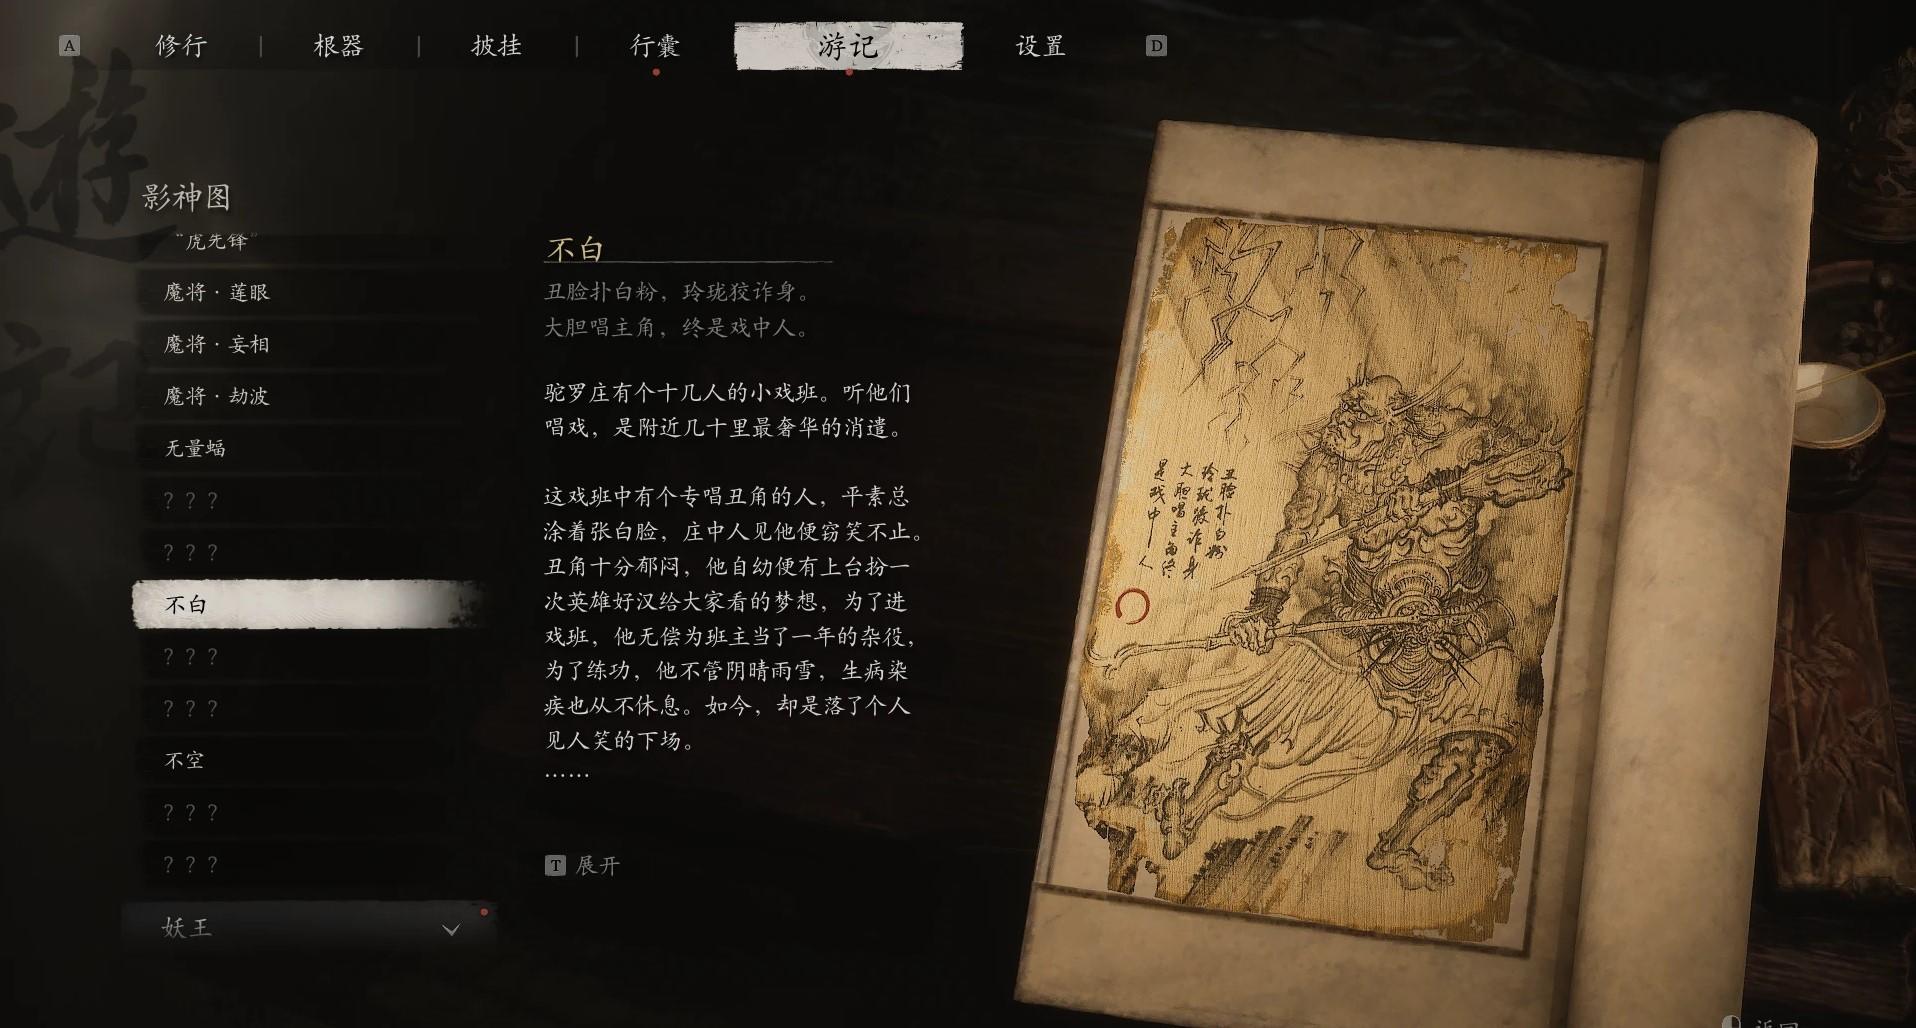 A 修行 | 根器 | 披挂 | 行囊 游记 设置 D
遊記
影神图
“虎先锋”
魔将·莲眼
魔将·妄相
魔将·劫波
无量蝠
？？？
？？？
不白
？？？
？？？
不空
？？？
？？？
妖王
不白
丑脸扑白粉，玲珑狡诈身。
大胆唱主角，终是戏中人。
驼罗庄有个十几人的小戏班。听他们
唱戏，是附近几十里最奢华的消遣。
这戏班中有个专唱丑角的人，平素总
涂着张白脸，庄中人见他便窃笑不止。
丑角十分郁闷，他自幼便有上台扮一
次英雄好汉给大家看的梦想，为了进
戏班，他无偿为班主当了一年的杂役，
为了练功，他不管阴晴雨雪，生病染
疾也从不休息。如今，却是落了个人
见人笑的下场。
……
T 展开
丑脸扑白粉
玲珑狡诈身
大胆唱主角终
是戏中人
返回